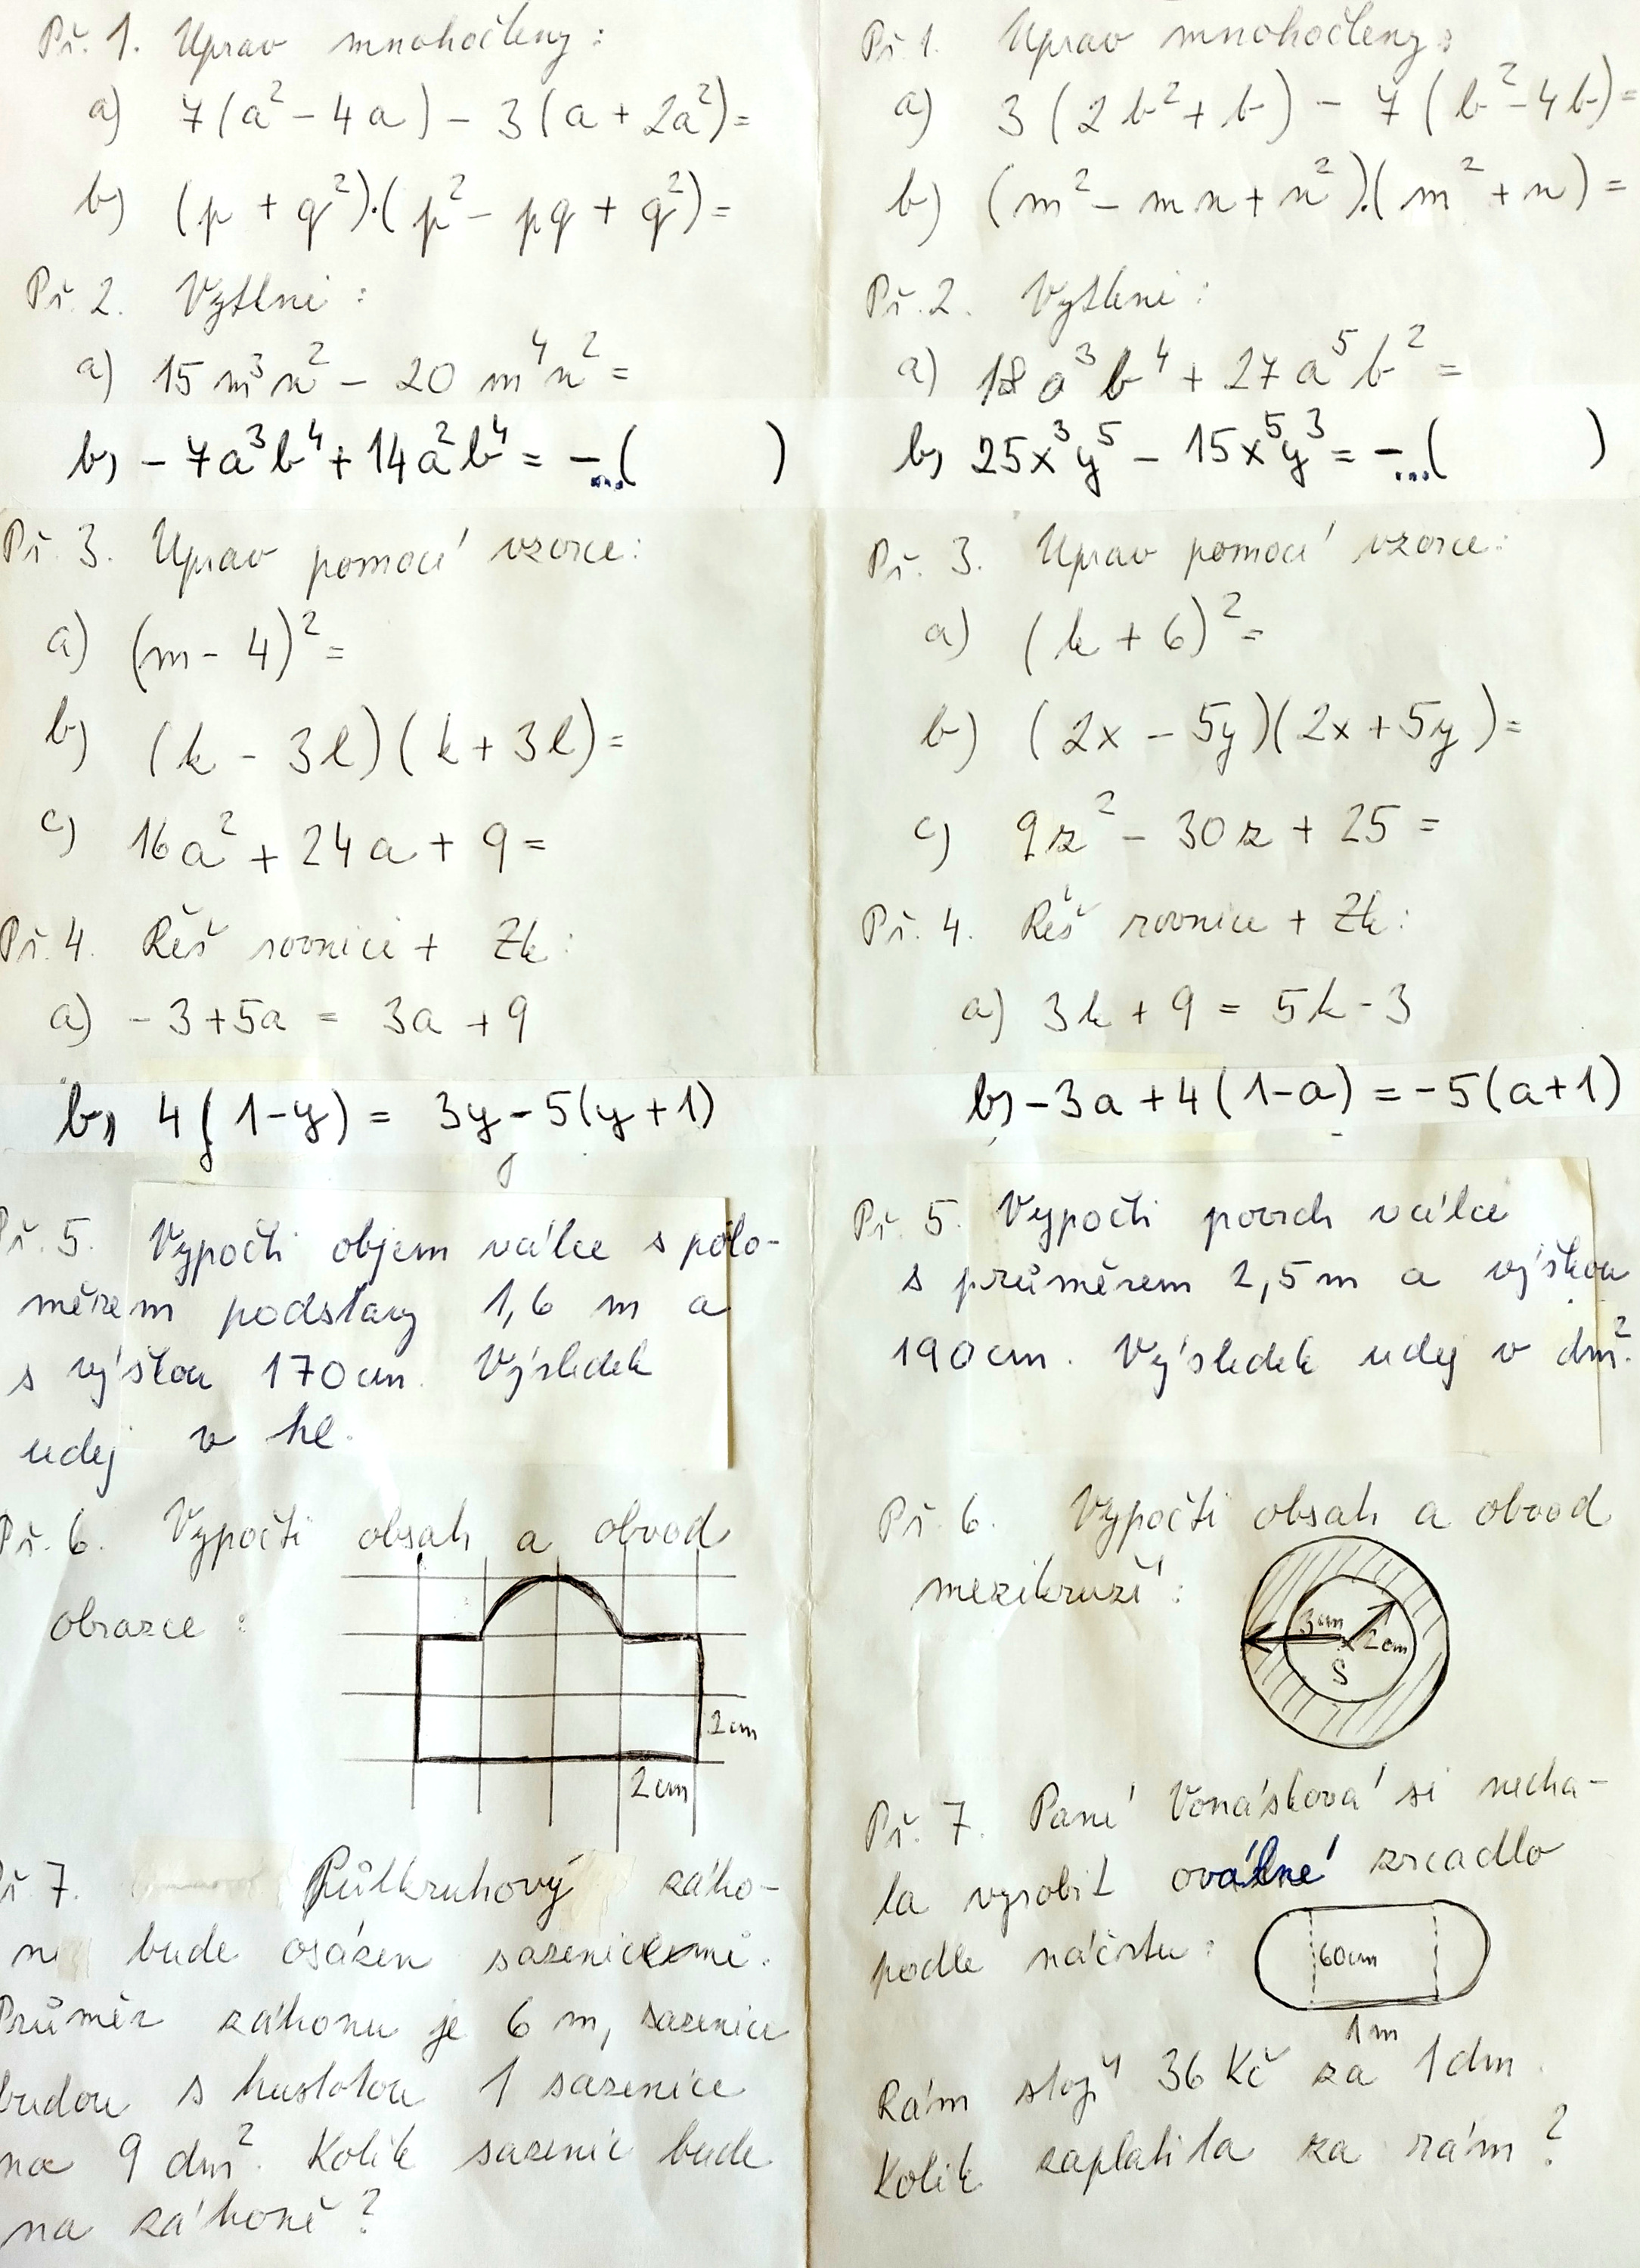 Př. 1. Uprav mnohočleny:
a) 7(a² - 4a) - 3(a + 2a²)=
b) (p + q²)·(p² - pq + q²)=
Př. 2. Vytkni:
a) 15m³n² - 20m⁴n² =
b) -7a³b⁴ + 14a²b⁴ = -...( )
Př. 3. Uprav pomocí vzorce:
a) (m - 4)² =
b) (k - 3l)(k + 3l)=
c) 16a² + 24a + 9 =
Př. 4. Řěš rovnici + Zk:
a) -3+5a = 3a + 9
b) 4(1-y) = 3y-5(y+1)
Př. 5. Vypočti objem válce s polo-
měrem podstavy 1,6 m a
s výškou 170cm. Výsledek
udej v hl.
Př. 6. Vypočti obsah a obvod
obrazce:
2cm
2cm
Př 7. Půlkruhový záho-
n bude osázen sazenicemi.
Průměr záhonu je 6 m, sazenice
budou s hustotou 1 sazenice
na 9 dm². Kolik sazenic bude
na záhoně?
Př 1. Uprav mnohočleny:
a) 3(2b² + b) - 7(b² - 4b)=
b) (m² - mn + n²)·(m² + n) =
Př. 2. Vytkni:
a) 18a³b⁴ + 27a⁵b² =
b) 25x³y⁵ - 15x⁵y³ = -...( )
Př. 3. Uprav pomocí vzorce:
a) (k + 6)² =
b) (2x - 5y)(2x + 5y)=
c) 9z² - 30z + 25 =
Př. 4. Řeš rovnice + Zk:
a) 3k + 9 = 5k - 3
b) -3a + 4(1-a) = -5(a+1)
Př. 5. Vypočti povrch válce
s průměrem 2,5m a výškou
190cm. Výsledek udej v dm².
Př. 6. Vypočti obsah a obvod
mezikruží:
3cm
2cm
S
Př. 7. Paní Vonásková si necha-
la vyrobit oválné zrcadlo
podle náčrtu:
60cm
1m
Rám stojí 36 Kč za 1dm.
Kolik zaplatila za rám?